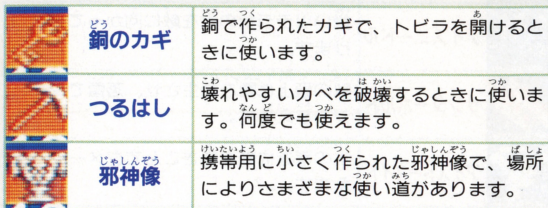 銅のカギ
銅で作られたカギで、トビラを開けると
きに使います。
つるはし
壊れやすいカベを破壊するときに使いま
す。何度でも使えます。
邪神像
携帯用に小さく作られた邪神像で、場所
によりさまざまな使い道があります。